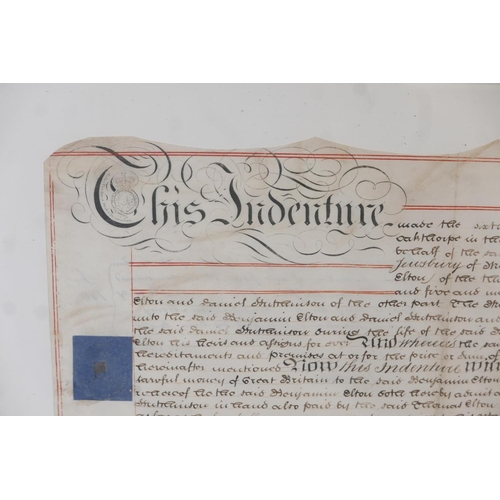 This Indenture made the sixt
Oakthorpe in th
behalf of the sa
Jewsbury of
Elton of the
and five and
Elton and Daniel Hutchinson of the other part
unto the said Benjamin Elton and Daniel Hutchinson and
the said Daniel Hutchinson during the life of the said
Elton his heirs and assigns for ever And Whereas the sa
hereditaments and premises at or for the price or sum of
hereinafter mentioned Now this Indenture Wi
lawful money of Great Britain to the said Benjamin Elton
whereof he the said Benjamin Elton doth hereby admit a
Hutchinson in hand also paid by the said Thomas Elton